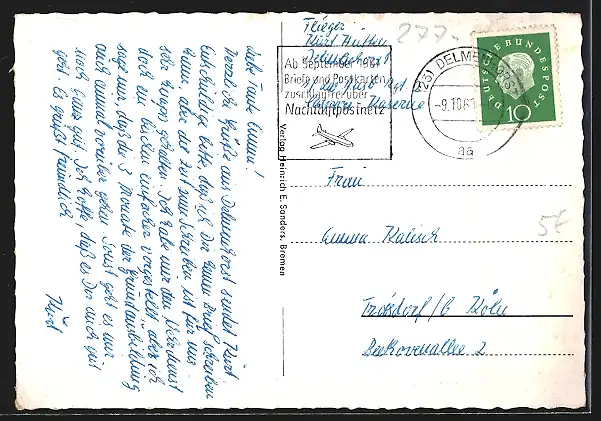 Liebe Tante Emma!
Herzliche Grüße aus Delmenhorst sendet Kurt.
Entschuldige bitte, daß ich Dir keinen Brief schreiben
kann, aber die Zeit zum Schreiben ist für uns
sehr knapp gehalten. Ich habe mir den Wehrdienst
doch ein bischen einfacher vorgestellt, aber ich
sage mir, daß die 3 Monate der Grundausbildung
auch einmal vorüber gehen. Sonst geht es mir
noch ganz gut. Ich hoffe, daß es Dir auch gut
geht. Es grüßt freundlich
Kurt
Verlag Heinrich E. Sanders, Bremen
Flieger
Kurt
Delmenhorst
Kaserne
277.-
Ab September 1961
Briefe und Postkarten
zuschlagfrei über
Nachtluftpostnetz
(23) DELMENHORST
-9.10.61
aa
DEUTSCHE BUNDESPOST
10
Frau
Emma Kalisch
5€
Troisdorf/b Köln
Beethovenallee 2